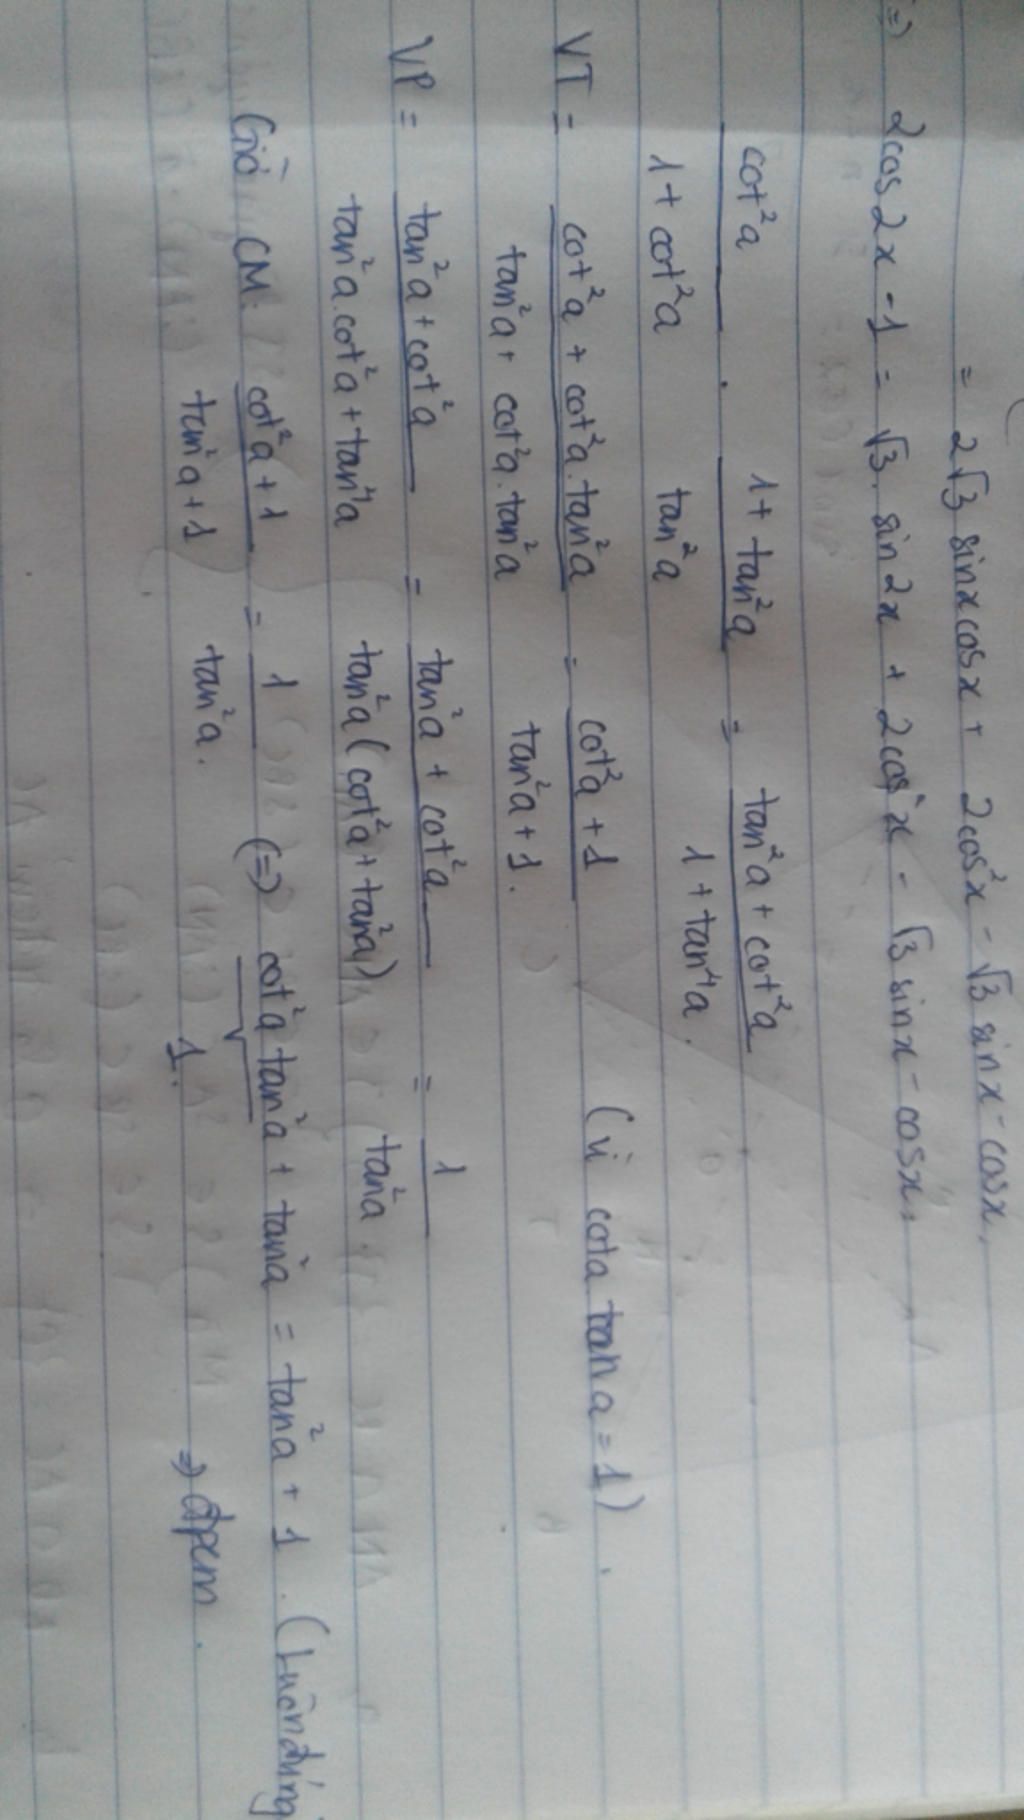 = 2√3 sinxcosx + 2cos²x - √3 sinx - cosx.
=) 2cos2x - 1 = √3. sin2x + 2cos²x - √3 sinx - cosx.
cot²a / (1 + cot²a) . (1 + tan²a) / tan²a = (tan²a + cot²a) / (1 + tan⁴a).
VT = (cot²a + cot²a.tan²a) / (tan²a + cot²a.tan²a) = (cot²a + 1) / (tan²a + 1). (vì cota tan a = 1).
VP = (tan²a + cot²a) / (tan²a.cot²a + tan⁴a) = (tan²a + cot²a) / (tan²a (cot²a + tan²a)) = 1 / tan²a.
Giờ CM: (cot²a + 1) / (tan²a + 1) = 1 / tan²a. (=) cot²a tan²a + tan²a = tan²a + 1. (luôn đúng
1. =) đpcm.